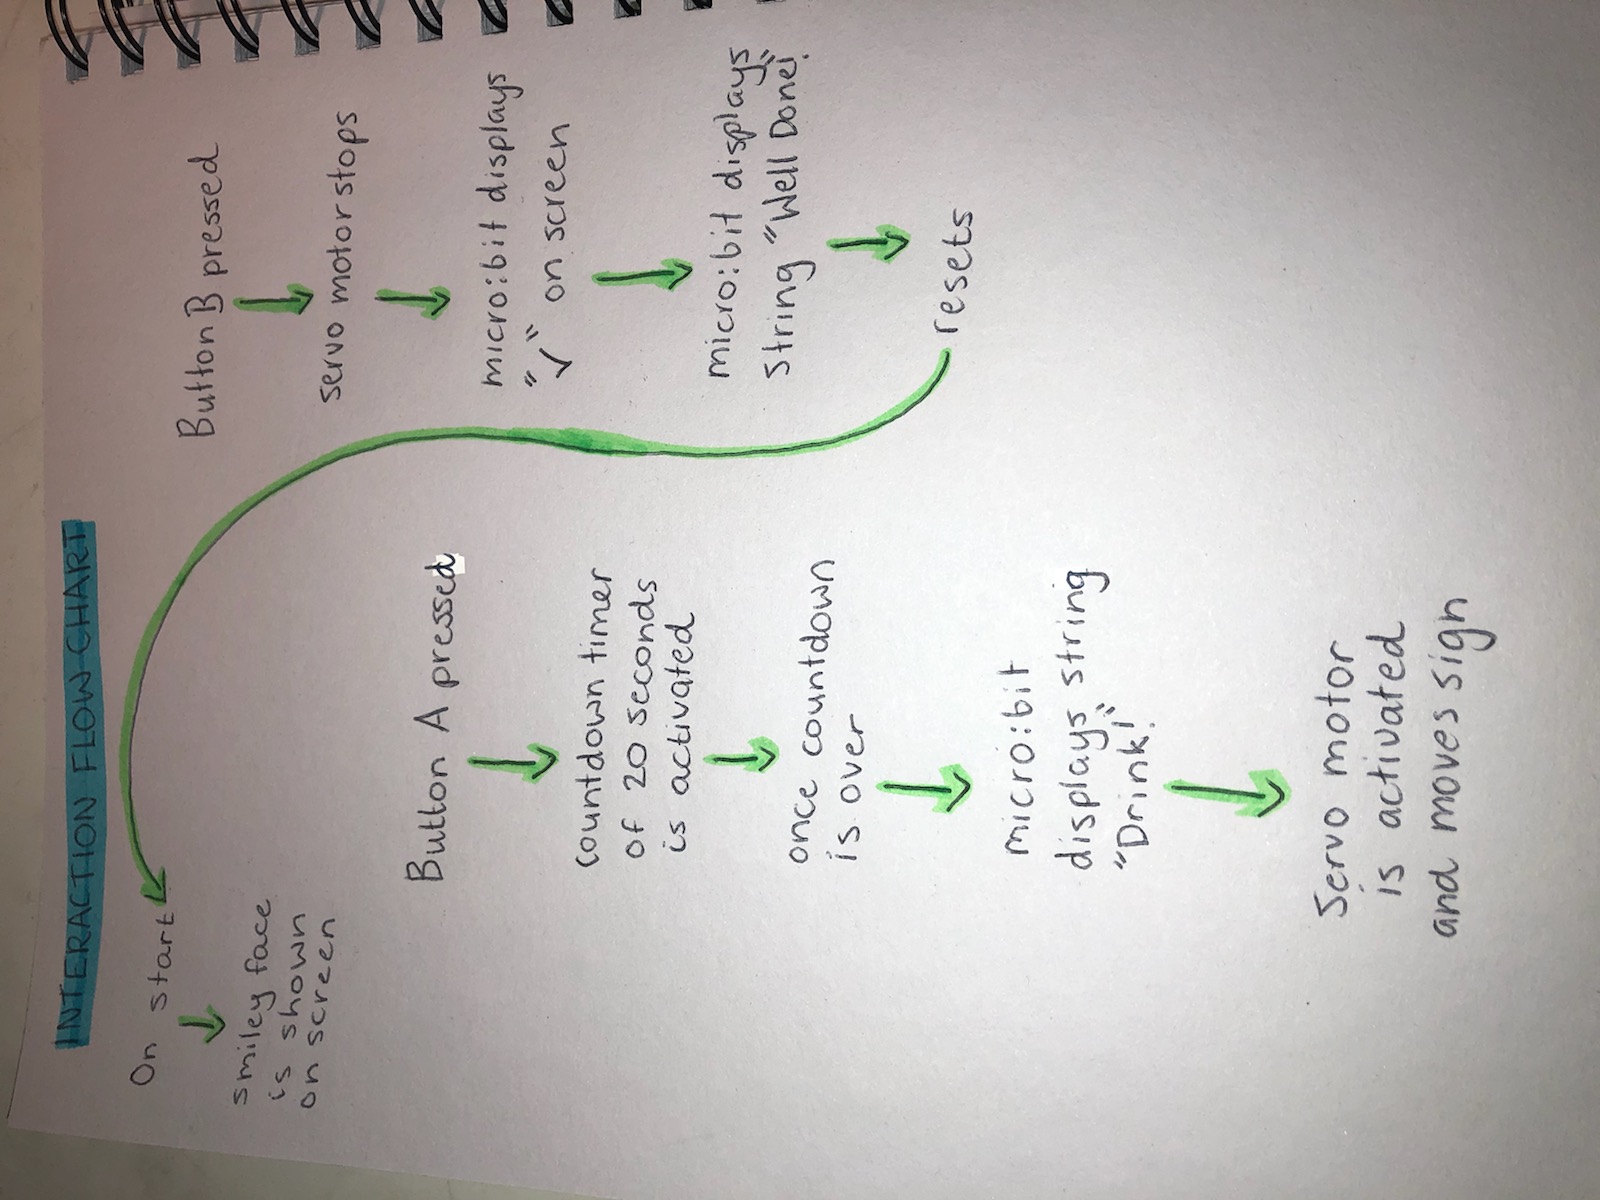 INTERACTION FLOW CHART
On start
smiley face
is shown
on screen
Button A pressed
countdown timer
of 20 seconds
is activated
once countdown
is over
micro:bit
displays string
"Drink!"
Servo motor
is activated
and moves sign
Button B pressed
servo motor stops
micro:bit displays
"✓" on screen
micro:bit displays
string "Well Done!"
resets